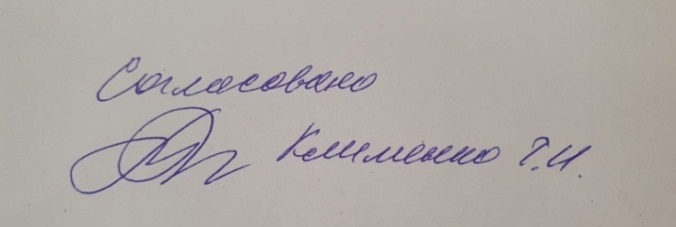 Согласовано
Клименко Т.И.